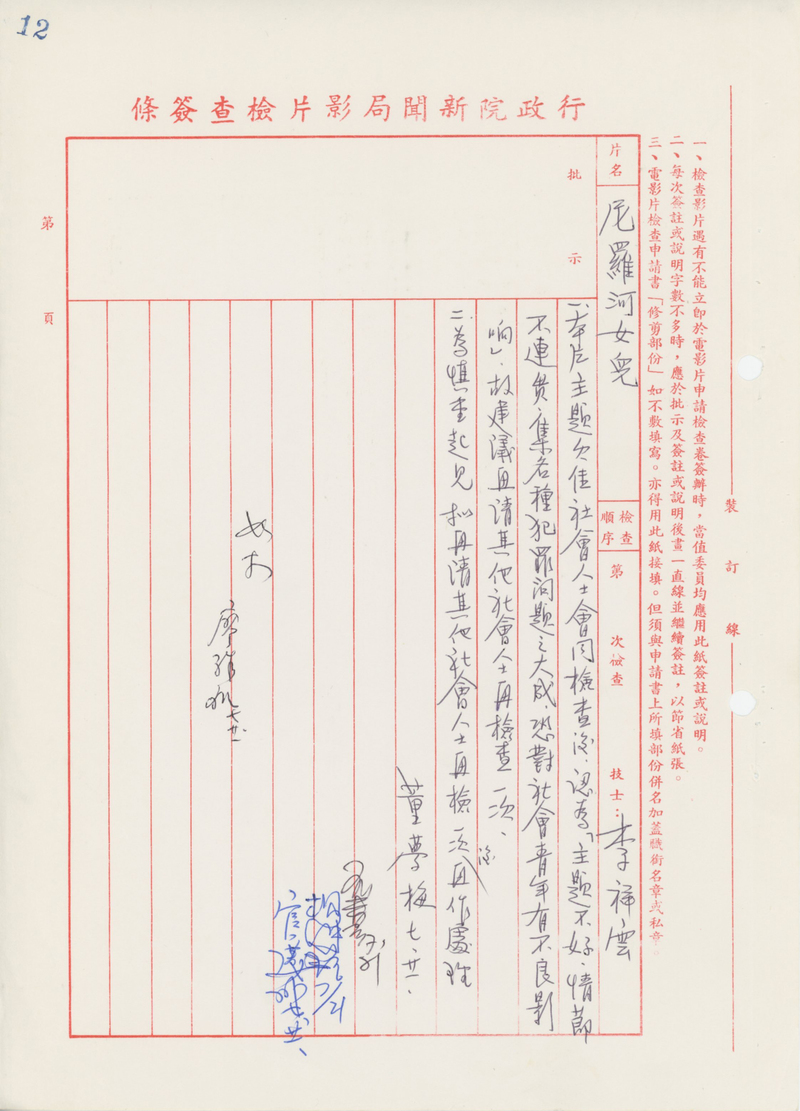 12
行政院新聞局影片檢查簽條
一、檢查影片遇有不能立即於電影片申請檢查卷簽辦時，當值委員均應用此紙簽註或說明。
二、每次簽註或說明字數不多時，應於批示及簽註或說明後畫一直線並繼續簽註，以節省紙張。
三、電影片檢查申請書「修剪部份」如不敷填寫。亦得用此紙接填。但須與申請書上所填部份併名加蓋職銜名章或私章。
裝訂線
片名
尼羅河女兒
檢查順序
第 次檢查
技士：李祥雲
批示
一、本片主題欠佳社會人士會同檢查後，認為「主題不好，情節
不連貫，集各種犯罪問題之大成，恐對社會青年有不良影
响」，故建議再請其他社會人士再檢查一次、
二、為慎重起見擬再請其他社會人士再檢一次後再作處理
董夢梅 七、廿一、
如擬
第 頁